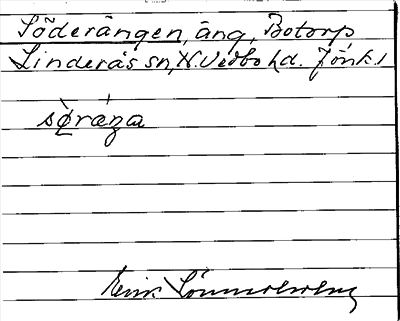 Söderängen, äng, Botorp
Linderås sn, N. Vedbo hd. Jönk. l
sø̀rǽŋa
Erik